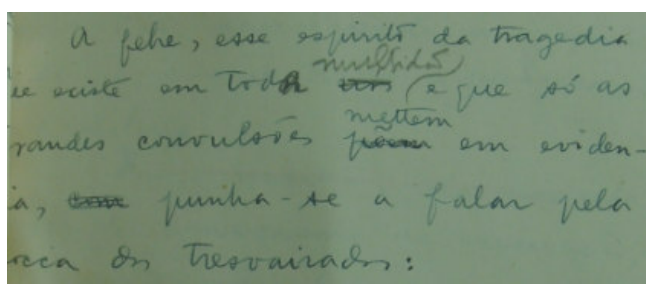 A plebe, esse espirito da tragedia
ue existe em toda multidão e que só as
randes convulsões mettem em eviden-
ia, punha-se a falar pela
occa dos tresvairados: